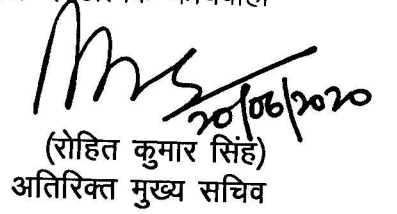 20/06/2020
(रोहित कुमार सिंह)
अतिरिक्त मुख्य सचिव